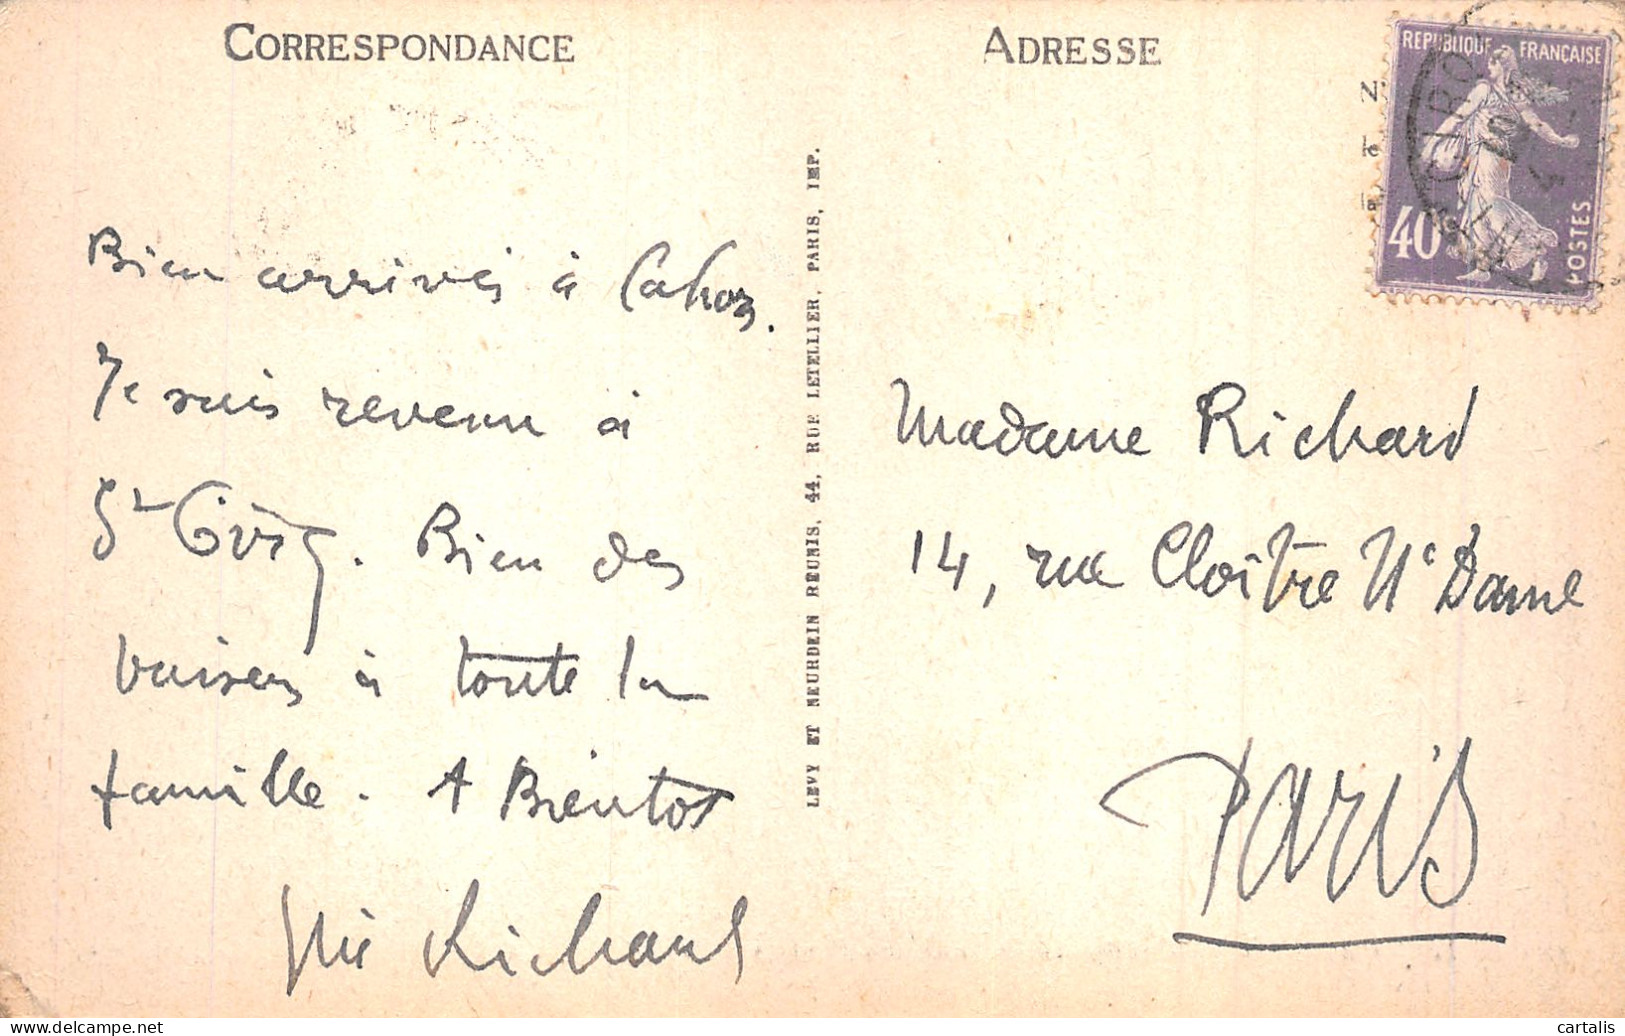 CORRESPONDANCE
Bien arrivés à Cahors.
Je suis revenu à
St Cirq. Bien des
baisers à toute la
famille. A Bientot
Richard
LEVY ET NEURDEIN RÉUNIS, 44, RUE LETELLIER, PARIS, IMP.
ADRESSE
REPUBLIQUE FRANÇAISE
40
POSTES
Madame Richard
14, rue Cloître Ne Dame
PARIS
© cartalis
www.delcampe.net